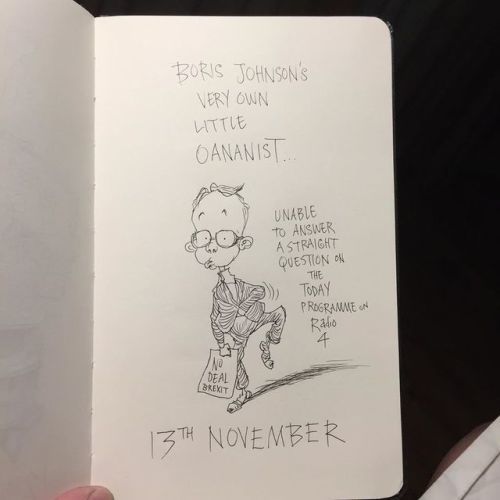 BORIS JOHNSON'S
VERY OWN
LITTLE
OANANIST...
UNABLE
TO ANSWER
A STRAIGHT
QUESTION ON
THE
TODAY
PROGRAMME ON
Radio
4
NO
DEAL
BREXIT
13TH NOVEMBER